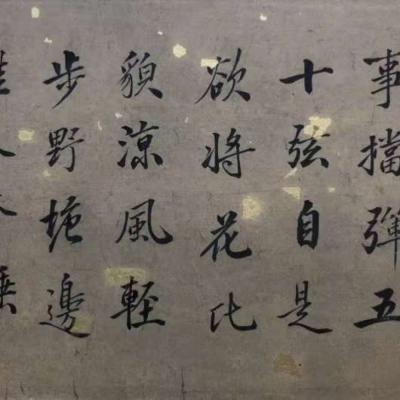 事擋彈五
十弦自是
欲將花比
貌涼風輕
步野塘邊